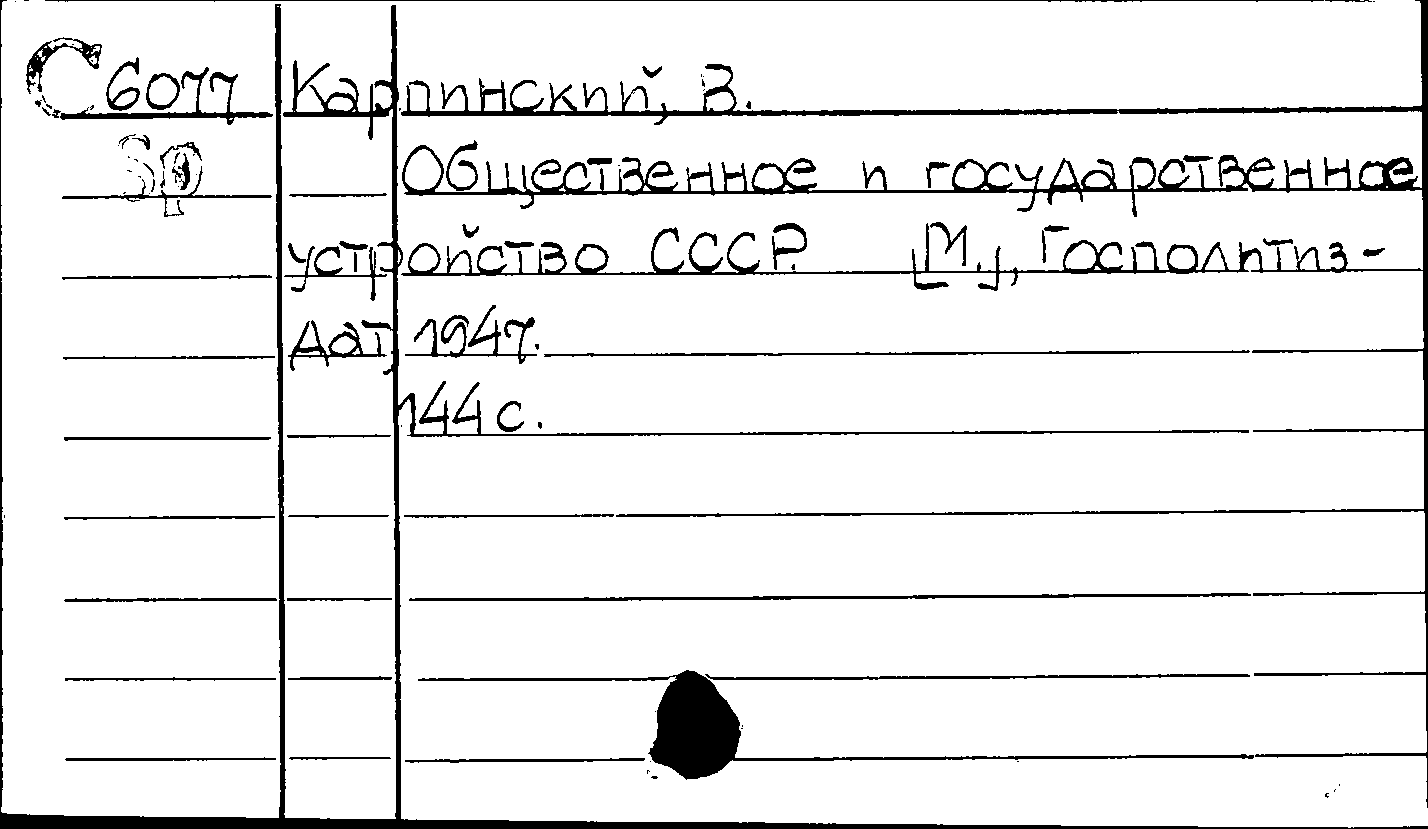 С6077 Карпинский, В.
Sp Общественное и государственное
устройство СССР. [М.], Госполитиз-
дат, 1947.
144 с.